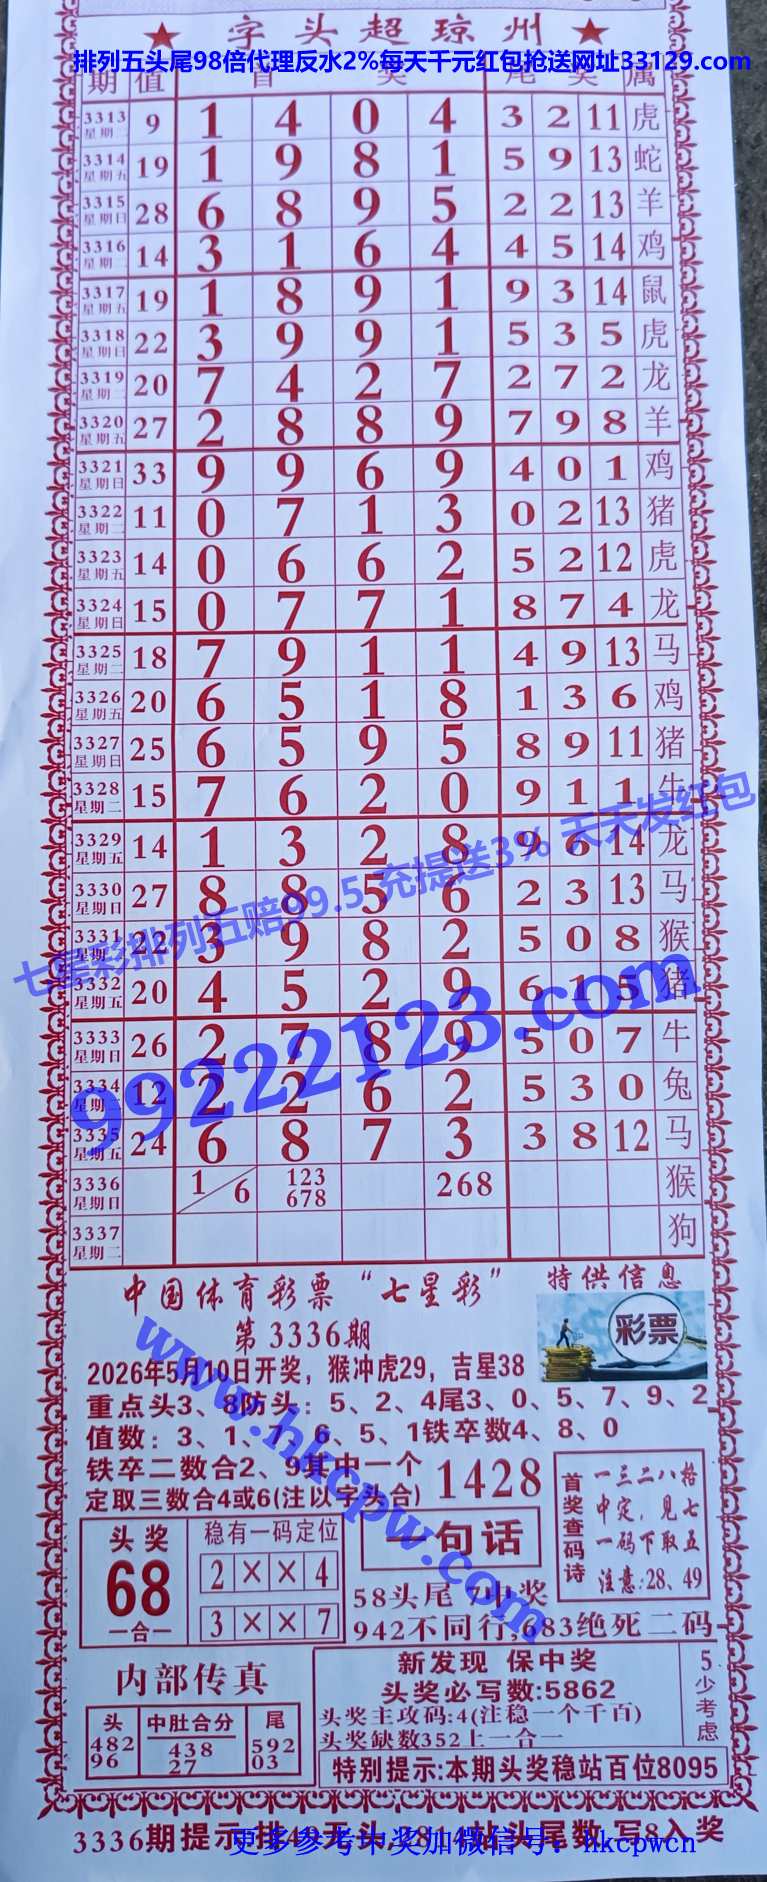 ★ 字头超琼州 ★
排列五头尾98倍代理反水2%每天千元红包抢送网址33129.com
期 值 首 奖 尾 奖 属
3313 星期二 9 1 4 0 4 3 2 11 虎
3314 星期五 19 1 9 8 1 5 9 13 蛇
3315 星期日 28 6 8 9 5 2 2 13 羊
3316 星期二 14 3 1 6 4 4 5 14 鸡
3317 星期五 19 1 8 9 1 9 3 14 鼠
3318 星期日 22 3 9 9 1 5 3 5 虎
3319 星期二 20 7 4 2 7 2 7 2 龙
3320 星期五 27 2 8 8 9 7 9 8 羊
3321 星期日 33 9 9 6 9 4 0 1 鸡
3322 星期二 11 0 7 1 3 0 2 13 猪
3323 星期五 14 0 6 6 2 5 2 12 虎
3324 星期日 15 0 7 7 1 8 7 4 龙
3325 星期二 18 7 9 1 1 4 9 13 马
3326 星期五 20 6 5 1 8 1 3 6 鸡
3327 星期日 25 6 5 9 5 8 9 11 猪
3328 星期二 15 7 6 2 0 9 1 1 牛
3329 星期五 14 1 3 2 8 9 6 14 龙
3330 星期日 27 8 8 5 6 2 3 13 马
七星彩排列五赔99.5 充提送3% 天天发红包
3331 星期二 22 3 9 8 2 5 0 8 猴
3332 星期五 20 4 5 2 9 6 1 5 猪
3333 星期日 26 2 7 8 9 5 0 7 牛
99222123.com
3334 星期二 12 2 2 6 2 5 3 0 兔
3335 星期五 24 6 8 7 3 3 8 12 马
3336 星期日 1/6 123 678 268 猴
3337 星期二 狗
中国体育彩票“七星彩” 特供信息
第3336期
彩票
2026年5月10日开奖，猴冲虎29，吉星38
重点头3、8防头：5、2、4尾3、0、5、7、9、2
值数：3、1、7、6、5、1铁卒数4、8、0
铁卒二数合2、9其中一个
定取三数合4或6(注以字头合)
1428
www.hkcpw.com
首奖查码诗
一三二八格
中定，见七
一码下取五
注意:28、49
头奖
68
一合一
稳有一码定位
2 × × 4
3 × × 7
一句话
58头尾 7中奖
942不同行,683绝死二码
内部传真
头
482
96
中肚合分
438
27
尾
592
03
新发现 保中奖
头奖必写数:5862
头奖主攻码:4(注稳一个千百)
头奖缺数352上一合一
5少考虑
特别提示:本期头奖稳站百位8095
3336期提示:排49无头,2814站头尾数,写8入奖
更多参考中奖加微信号：hkcpwcn